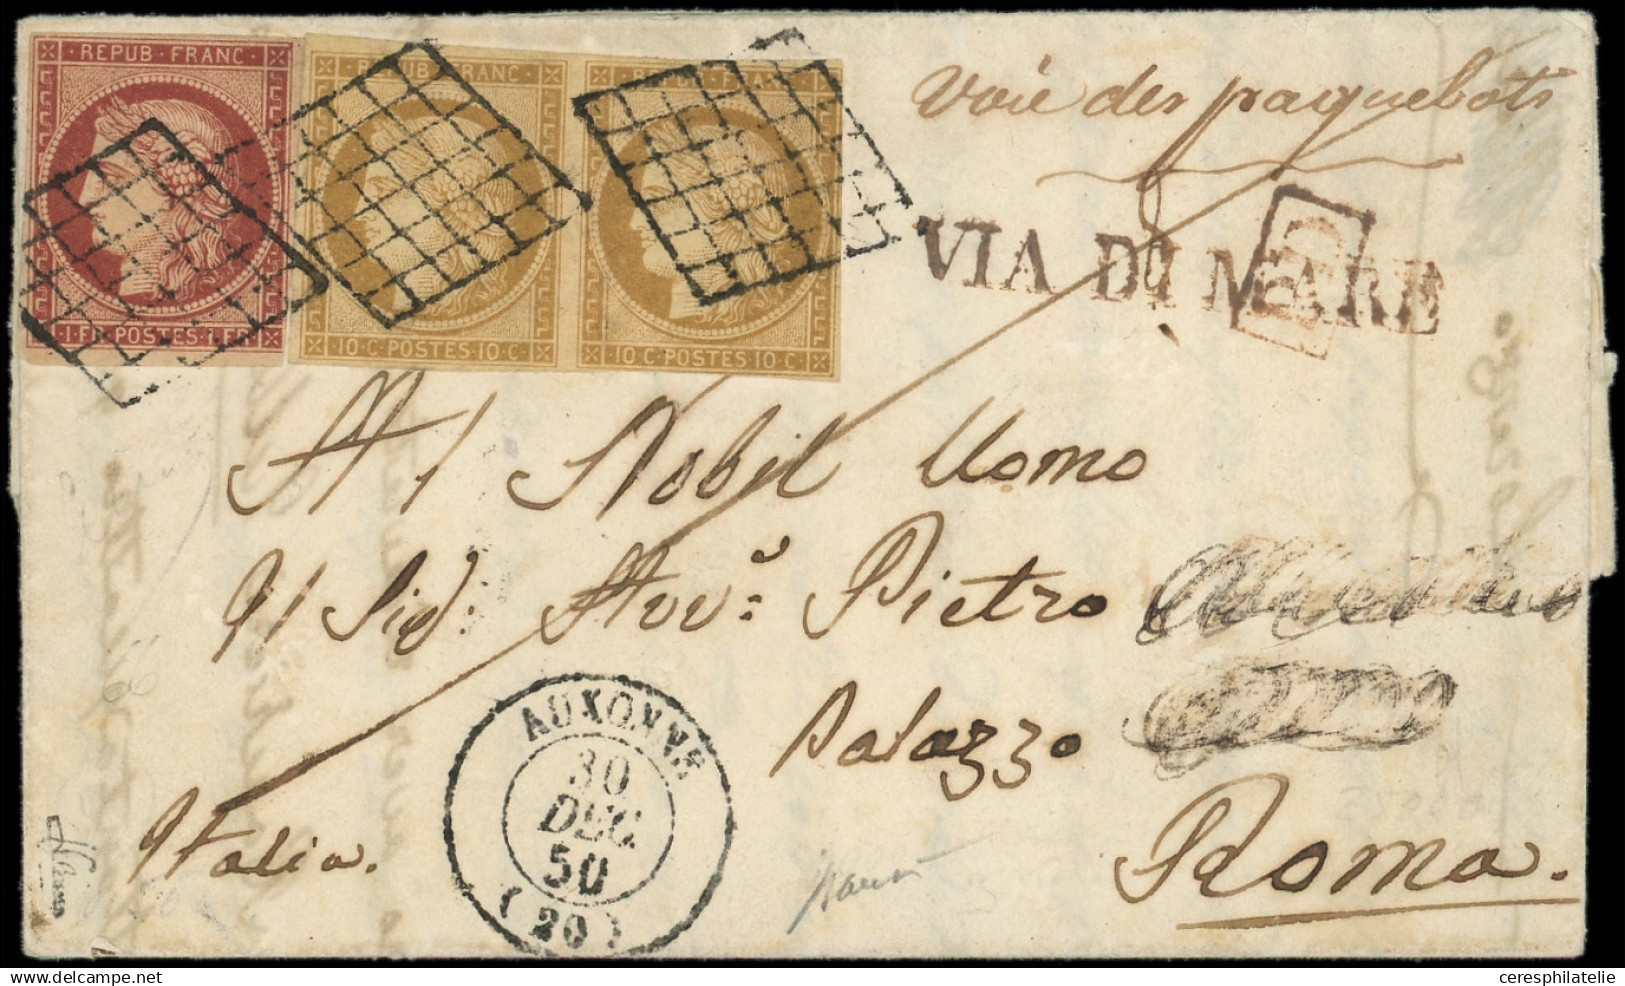 REPUB · FRANC ·
· 1 · FR · POSTES · 1 · FR ·
REPUB · FRANC ·
10 · C · POSTES · 10 · C ·
REPUB · FRANC ·
10 · C · POSTES · 10 · C ·
Voie des paquebots
VIA DI MARE
PD
Al Nobil Uomo
Il Sig: Avv: Pietro
Palazzo
Roma.
Italia.
AUXONNE
30
DEC.
50
(20)
ceresphilatelie